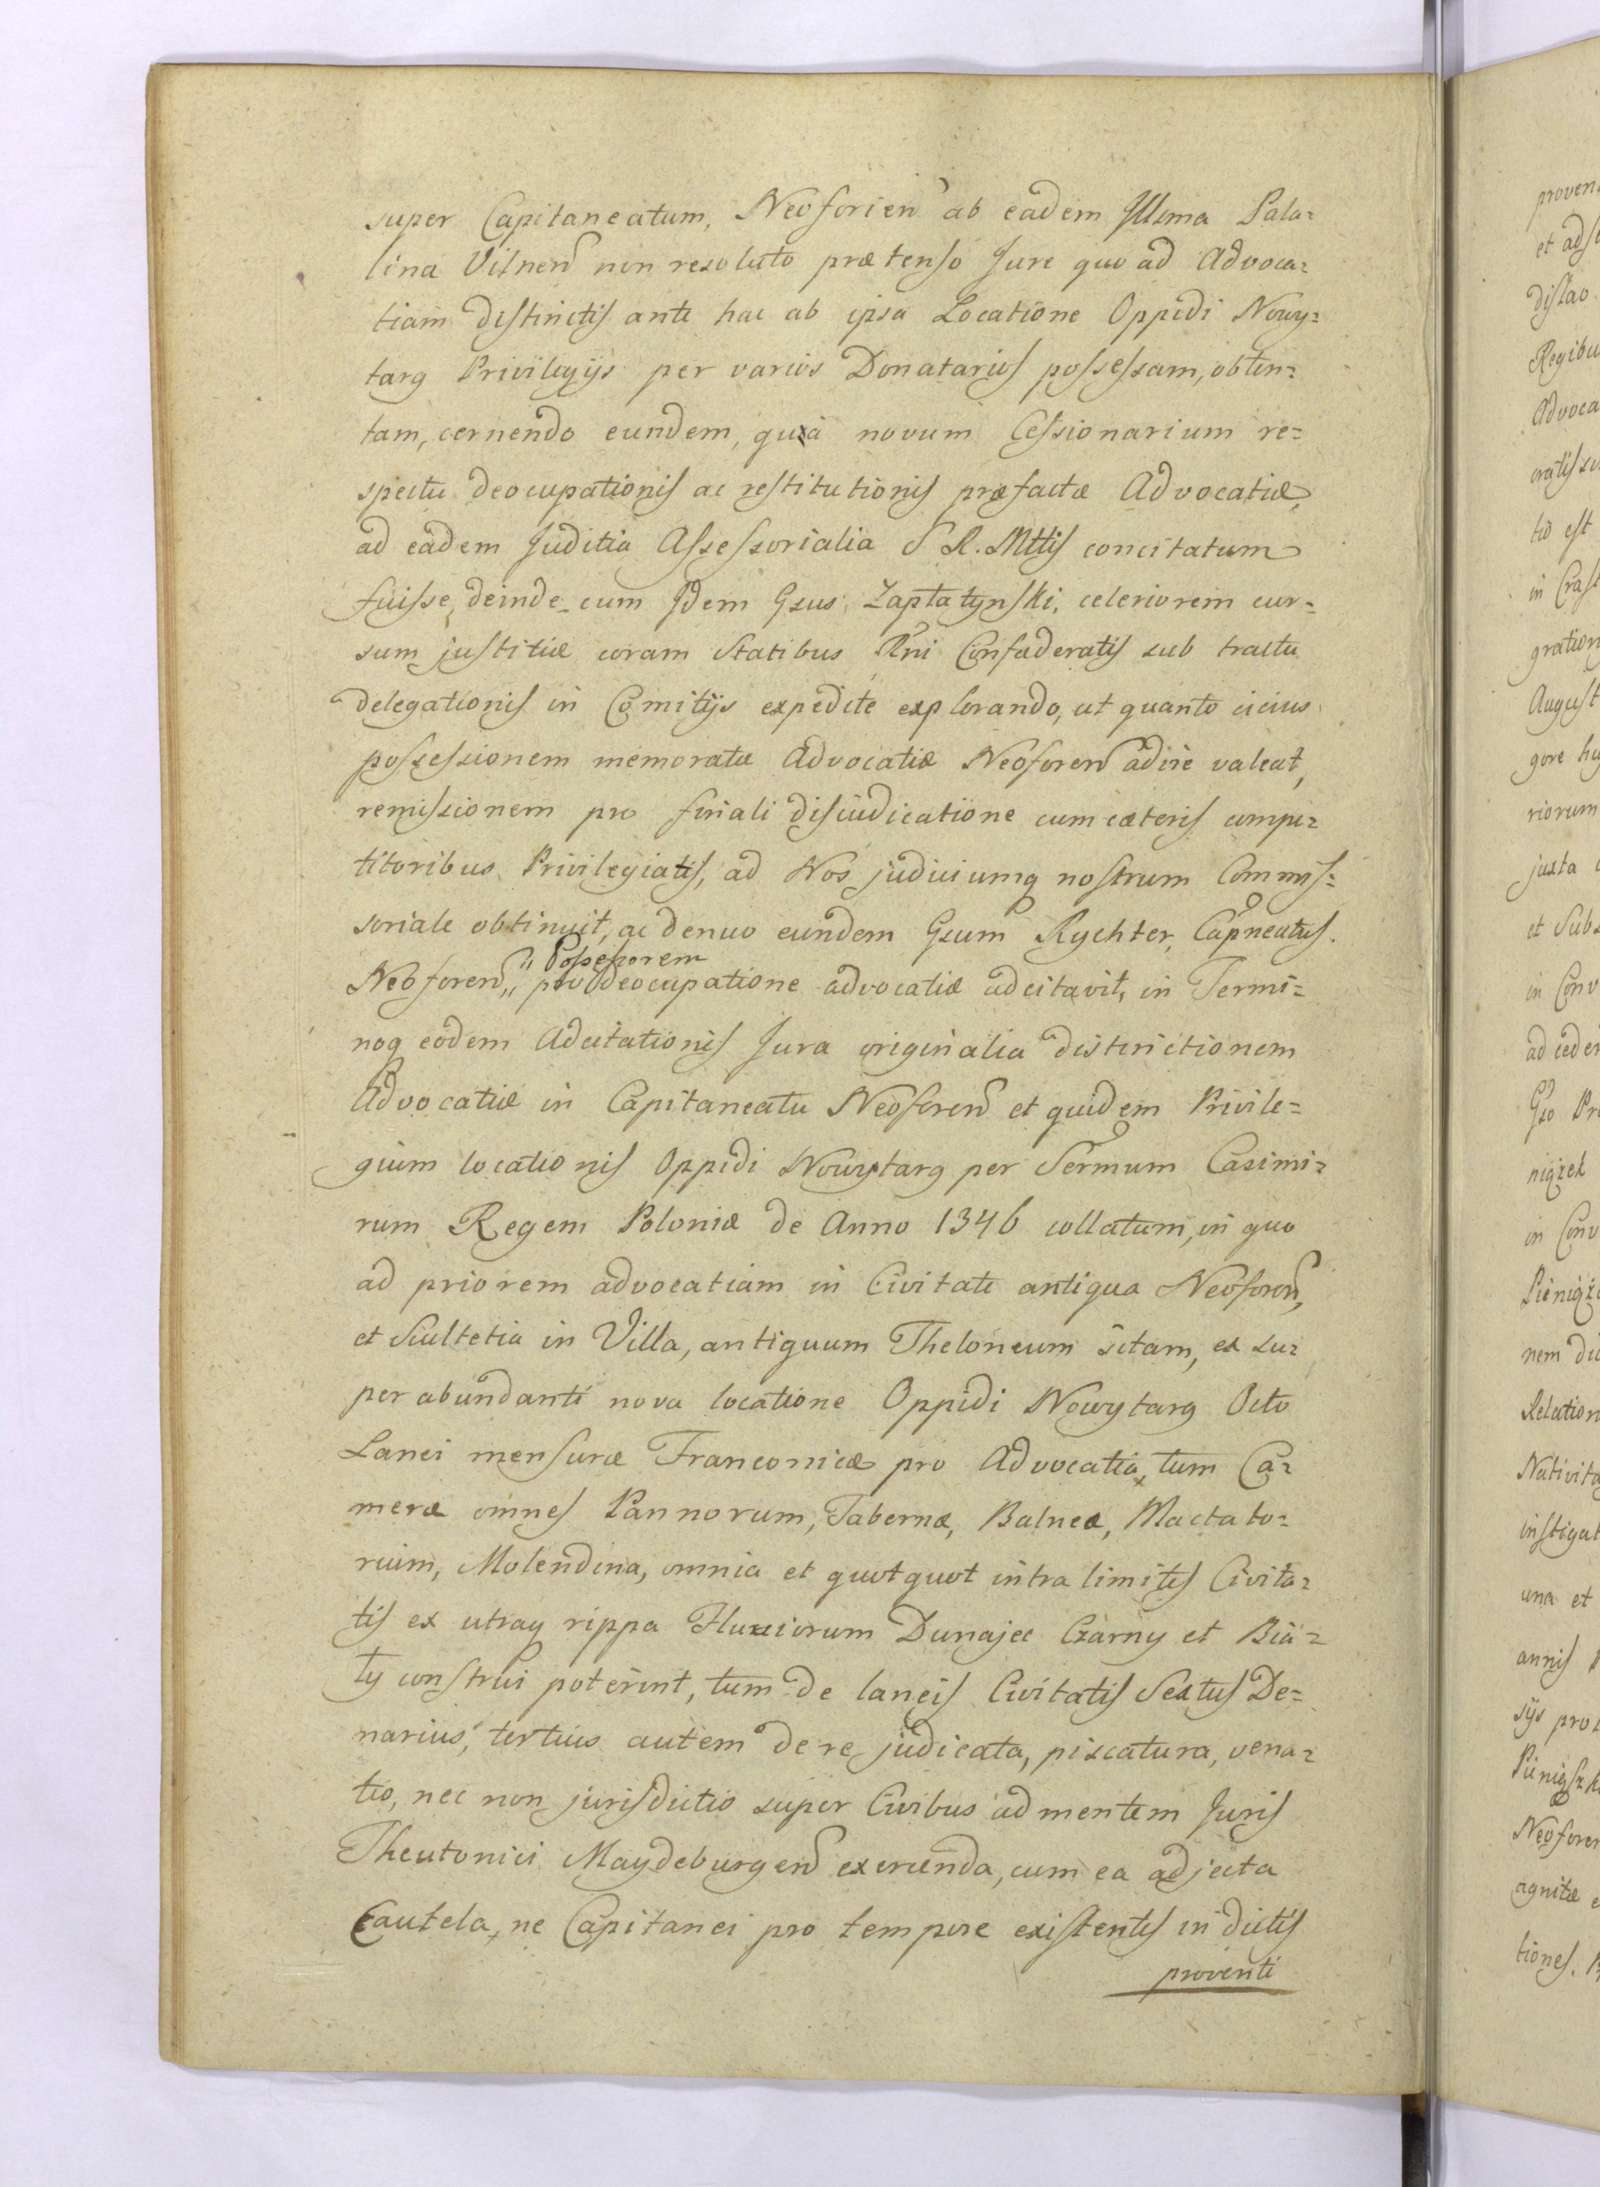 super Capitaneatum, Neoforien ab eadem Illsma Pala=
tina Vilnen non resoluto prætenso Jure quo ad Advoca=
tiam distinctis ante hac ab ipsa Locatione Oppidi Nowy=
targ Privilegijs per varios Donatarios possessam, obten=
tam, cernendo eundem, quà novum Cessionarium re=
spectu deocupationis ac restitutionis præfactæ Advocatiæ,
ad eadem Juditia Assessorialia S R. Mttis concitatum
fuisse, deinde cum Idem Gsus Zaptatynski, celeriorem cur=
sum justitiæ coram Statibus Rni Confæderatis sub tractu
delegationis in Comitijs expedite explorando, ut quanto icius
possessionem memoratæ Advocatiæ Neoforen adire valeat,
remissionem pro finali disiudicatione cum cæteris compe=
titoribus Privilegiatis, ad Nos judiciumq nostrum Commis=
soriale obtinuit, ac denuo eundem Gsum Rychter, Capneatus.
Neoforen, " Possessorem
pro deocupatione advocatiæ adcitavit, in Termi=
noq eodem Adcitationis Jura originalia distinctionem
Advocatiæ in Capitaneatu Neoforen et quidem Privile=
gium locationis Oppidi Nowytarg per Sermum Casimi=
rum Regem Poloniæ de Anno 1346 collatum, in quo
ad priorem advocatiam in Civitate antiqua Neoforen,
et Scultetia in Villa, antiquum Theloneum sitam, ex su=
per abundanti nova locatione Oppidi Nowytarg Octo
Lanei mensuræ Franconicæ pro Advocatia, tum Ca=
meræ omnes Pannorum, Tabernæ, Balneæ, Mactato=
rium, Molendina, omnia et quotquot intra limites Civita=
tis ex utraq rippa Fluviorum Dunajec Czarny et Bia=
ły construi poterint, tum de laneis Civitatis Sextus De=
narius, tertius autem de re judicata, piscatura, vena=
tio, nec non jurisdictio super Civibus ad mentem Juris
Theutonici Maydeburgen exercenda, cum ea adjecta
Cautela, ne Capitanei pro tempore existentes in dictis
proventi
proven
et ads
dislao
Regibu
Advoca
tio est
in Cras
gration
August
gore hy
riorum
juxta
et Subs
in Conv
ad ceden
Gso Pr
niązek
in Conv
Pieniąż
nem di
Relation
Nativita
instigat
una et
annis
sijs pro
Pieniąż
Neoforen
agnitæ e
tiones.